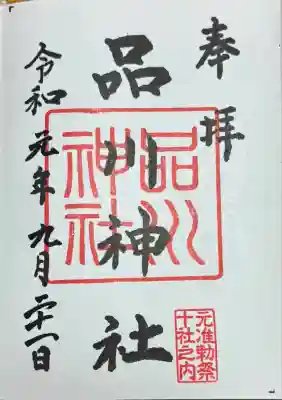 奉拝
品川神社
品川神社
元准勅祭
十社之内
令和元年九月二十一日